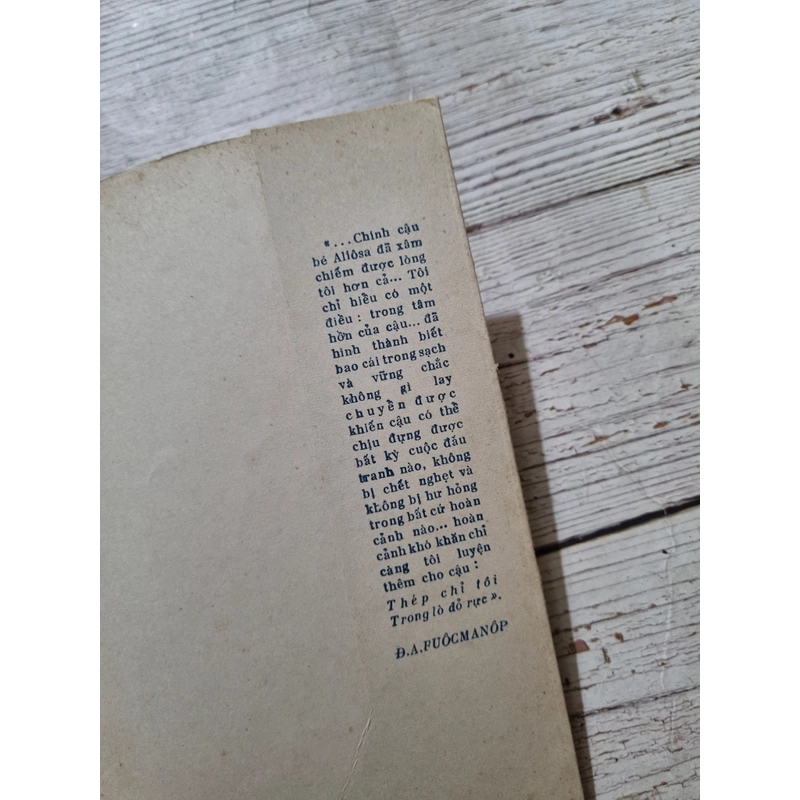 «...Chính cậu
bé Aliôsa đã xâm
chiếm được lòng
tôi hơn cả... Tôi
chỉ hiểu có một
điều : trong tâm
hồn của cậu... đã
hình thành biết
bao cái trong sạch
và vững chắc
không gì lay
chuyển được
khiến cậu có thể
chịu đựng được
bất kỳ cuộc đấu
tranh nào, không
bị chết nghẹt và
không bị hư hỏng
trong bất cứ hoàn
cảnh nào... hoàn
cảnh khó khăn chỉ
càng tôi luyện
thêm cho cậu :
Thép chỉ tôi
Trong lò đỏ rực».
Đ.A.FUÔCMANÔP